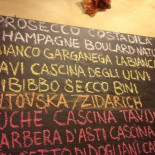 PROSECCO COSTADILÀ
CHAMPAGNE BOULARD NATU
BIANCO GARGANEGA LABIANC
AVI CASCINA DEGLI ULIVI
IBIBBO SECCO BINI
ITOVSKA ZIDARICH
UCHÉ CASCINA TAVIJN
ARBERA D'ASTI CASCINA
SETTO DI DOGLIANI CASC